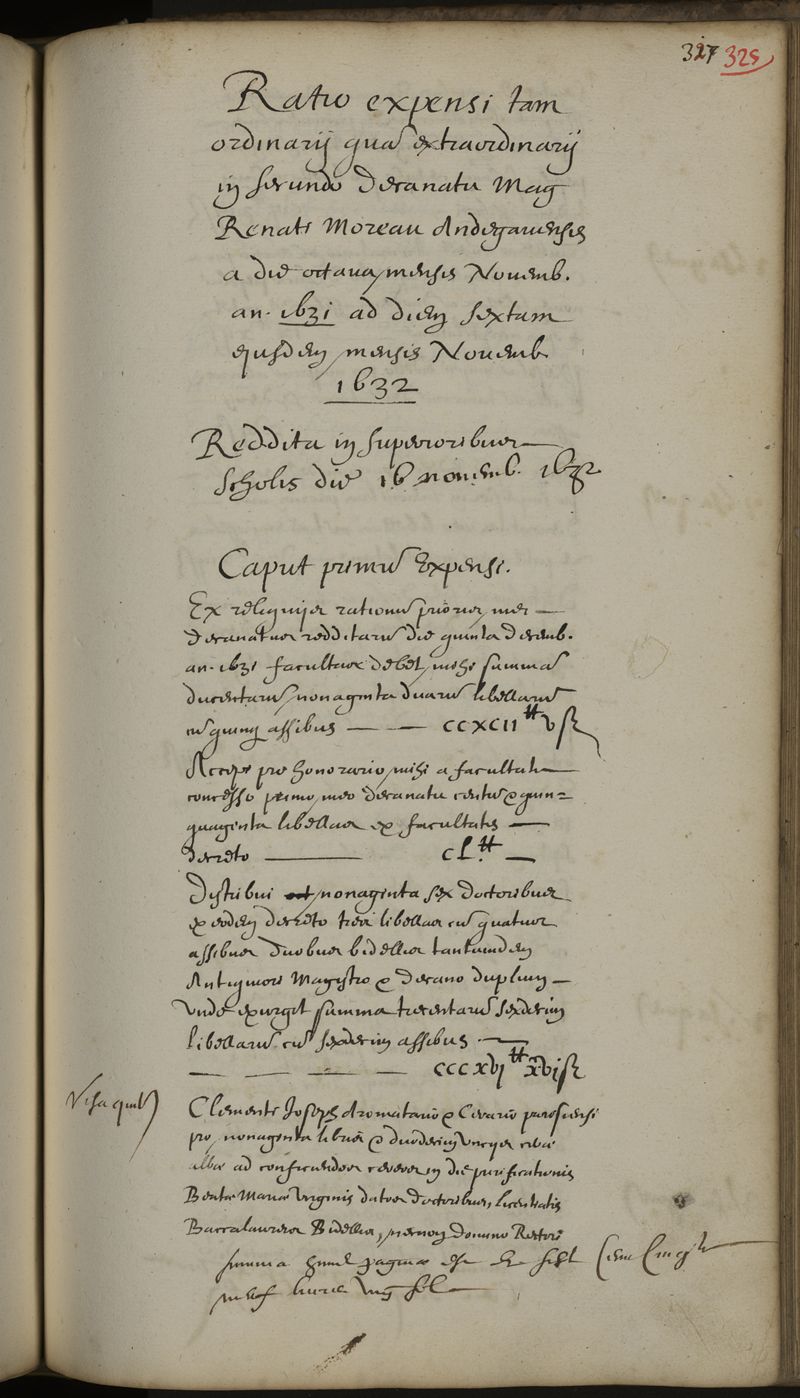 327 325
Ratio expensi tam
ordinarij quā extraordinarij
in secundo Decanatu Mag
Renati Moreau Andegavensis
a die octava mensis Novemb.
an. 1631 ad diem sextam
ejusdem mensis Novemb
1632
Reddita in superioribus
scholis die 16 novemb. 1632
Caput primū Expensi.
Ex reliquijs rationū prioris mei
Decanatus redditarū die quinta Decemb.
an. 1631 facultas debet mihi summā
ducentarū nonaginta duarū libellarū
cū quinq assibus — — CCXCII ₶ v ſ
Accepi pro honorario mihi a facultate
concesso primo meo decanatu centū & quin=
quaginta libellas ex facultatis
decreto — CL ₶ —
Distribui nonaginta sex Doctoribus
ex eodem decreto tres libellas cū quatuor
assibus duobus bidellis tantumdem
Antiquiori Magistro & decano duplum
Unde exurgit summa trecentarū sexdecim
libellarū cū sexdecim assibus —
— — — — CCCXVJ ₶ XVJ ſ
Clementi Joseph Aromatario & Cerario parisiensi
pro nonaginta libris & duodecim uncijs ceræ
albæ ad conficiendos cereos in die purificationis
Beatæ Mariæ Virginis datos doctoribus, licentiatis
Baccalaureis Bidellis, necnon Domino Rectori
summa